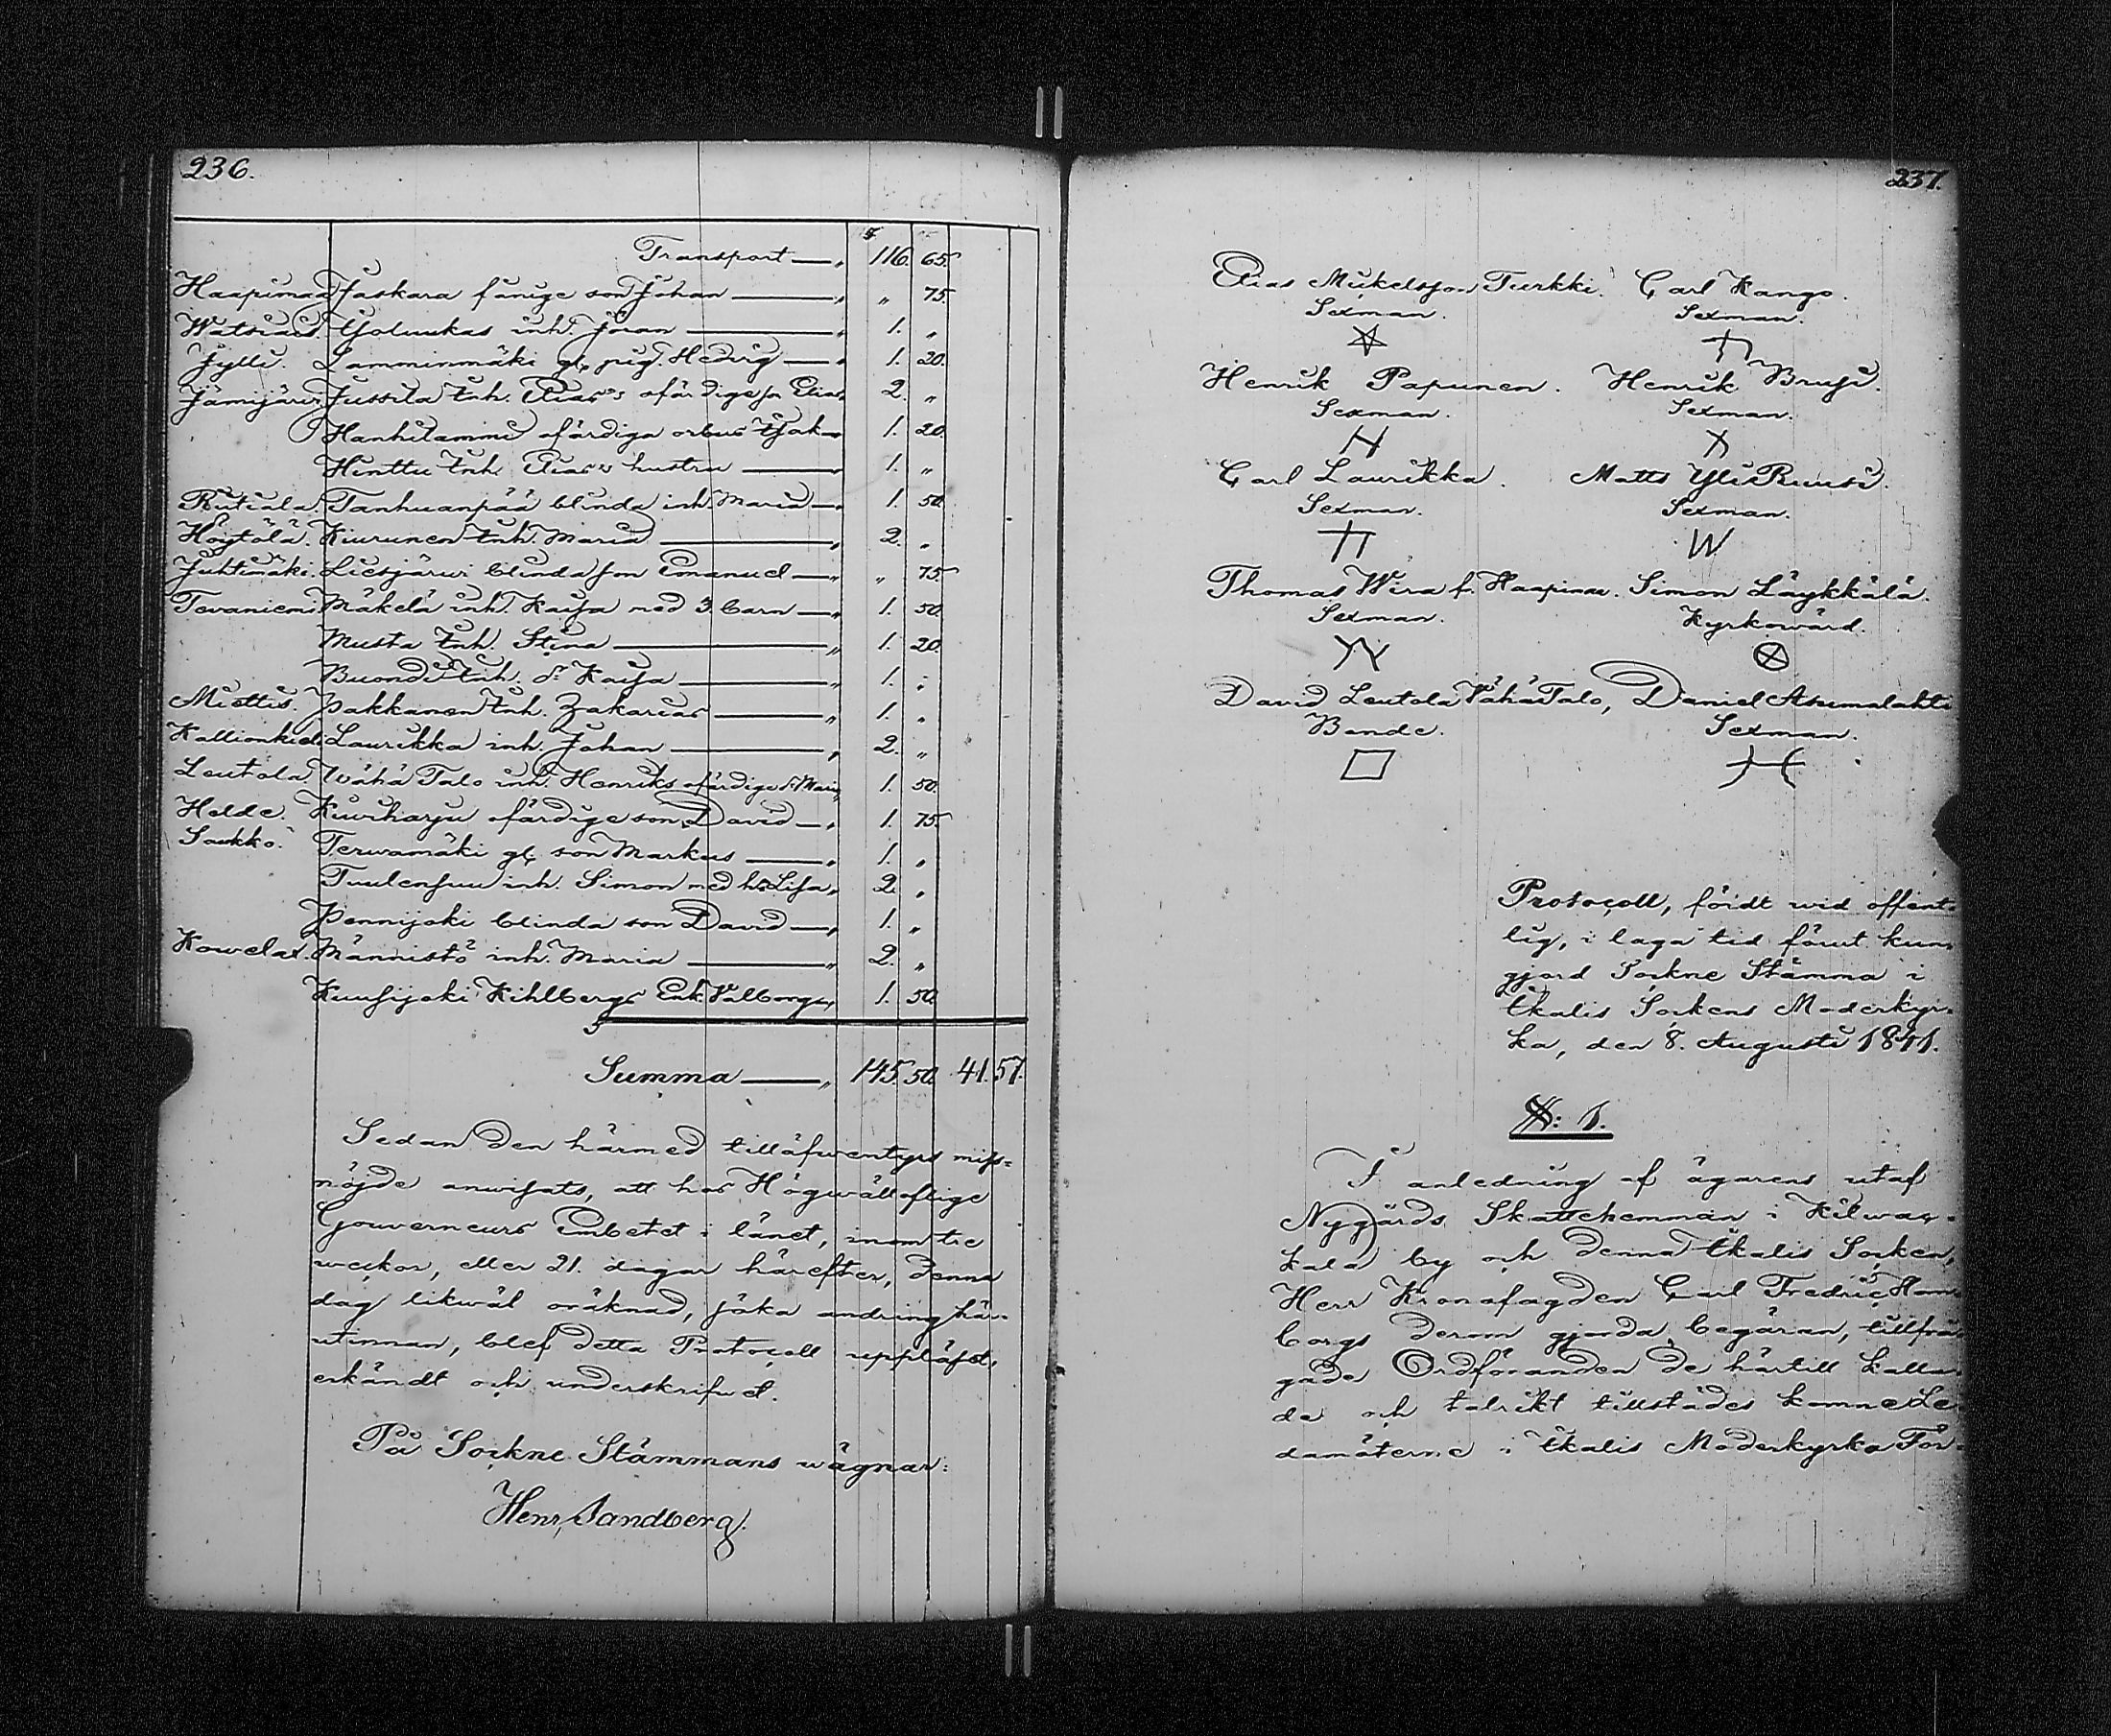 236.
Transport — „ 116. 65.
Haapimaa Jaskara fånige son Johan — „ „ 75.
Watsiais. Yoluukas inh. Jöran — „ 1. „
Jylli. Lamminmäki gl. pig. Hedvig — „ 1. 20.
Jämijärvi Jussila Inh. Elias's ofärdige so Elias 2. „
Hanhilammi ofärdiga Isak 1. 20.
Hinttu Inh. Elias's hustru — 1. „
Rutiala. Tanhuanpää blinda inh. Maria — 1. 50
Höytölä. Kiurunen Inh. Maria — „ 2. „
Juhtimäki. Liesjärwi blinda son Emanuel — „ „ 75.
Tevaniemi Mäkelä inh. Kaisa med 3 barn — „ 1. 50.
Musta Inh. Stina — „ 1. 20.
Inh. Kaisa — „ 1. „
Miettis. Pakkanen Inh. Zakarias — „ 1. „
Laurikka inh. Johan — „ 2. „
Leutola Wähä Talo inh. Henriks ofärdige Maria 1. 50.
Helde. Kuivharju ofärdige son David — „ 1. 75.
Sarkko. Terwamäki gl. son Markus — „ 1. „
Tuulensuu inh. Simon med h. Lisa „ 2. „
Pennijoki blinda son David — „ 1. „
Kowelax. Männistö inh. Maria — „ 2. „
Kuusijoki Kihlbergs Enk. Valborg „ 1. 50.
Summa — „ 145. 50. 41. 57.
Sedan den härmed tilläfwentyrs miss=
nöjde anwisats, att hos Högwälloflige
Gouverneurs Embetet i länet, inom tre
weckor, eller 21. dagar härefter, denna
dag likwäl oräknad, söka ändring här-
utinnan, blef detta Protocoll uppläst,
erkändt och underskrifwet.
På Sockne Stämmans wägnar:
Henr. Sandberg.
237.
Elias Mickelsson Turkki. Carl Kango.
Sexman. Sexman.
Henrik Papunen. Henrik Brusi.
Sexman. Sexman.
Carl Laurikka. Matts Yli Ruusi.
Sexman. Sexman.
Thomas Wira fr. Haapimaa. Simon Läykkälä.
Sexman. Kyrkowärd.
David Leutola Vähä Talo, Daniel Asumalahti
Bonde. Sexman.
Protocoll, fördt wid offent-
lig, i laga tid förut kun-
gjord Sockne Stämma i
Ikalis Sockens Moderkyr-
ka, den 8. Augusti 1841.
§: 1.
I anledning af ägarens utaf
Nygårds Skattehemman i Kilwa-
kala by och denna Ikalis Socken,
Herr Kronofogden Carl Fredric Ham-
borgs derom gjorda begäran, tillfrå-
gade Ordföranden de härtill kalla-
de och talrikt tillstädes komne Le-
damöterne i Ikalis Moderkyrko För-